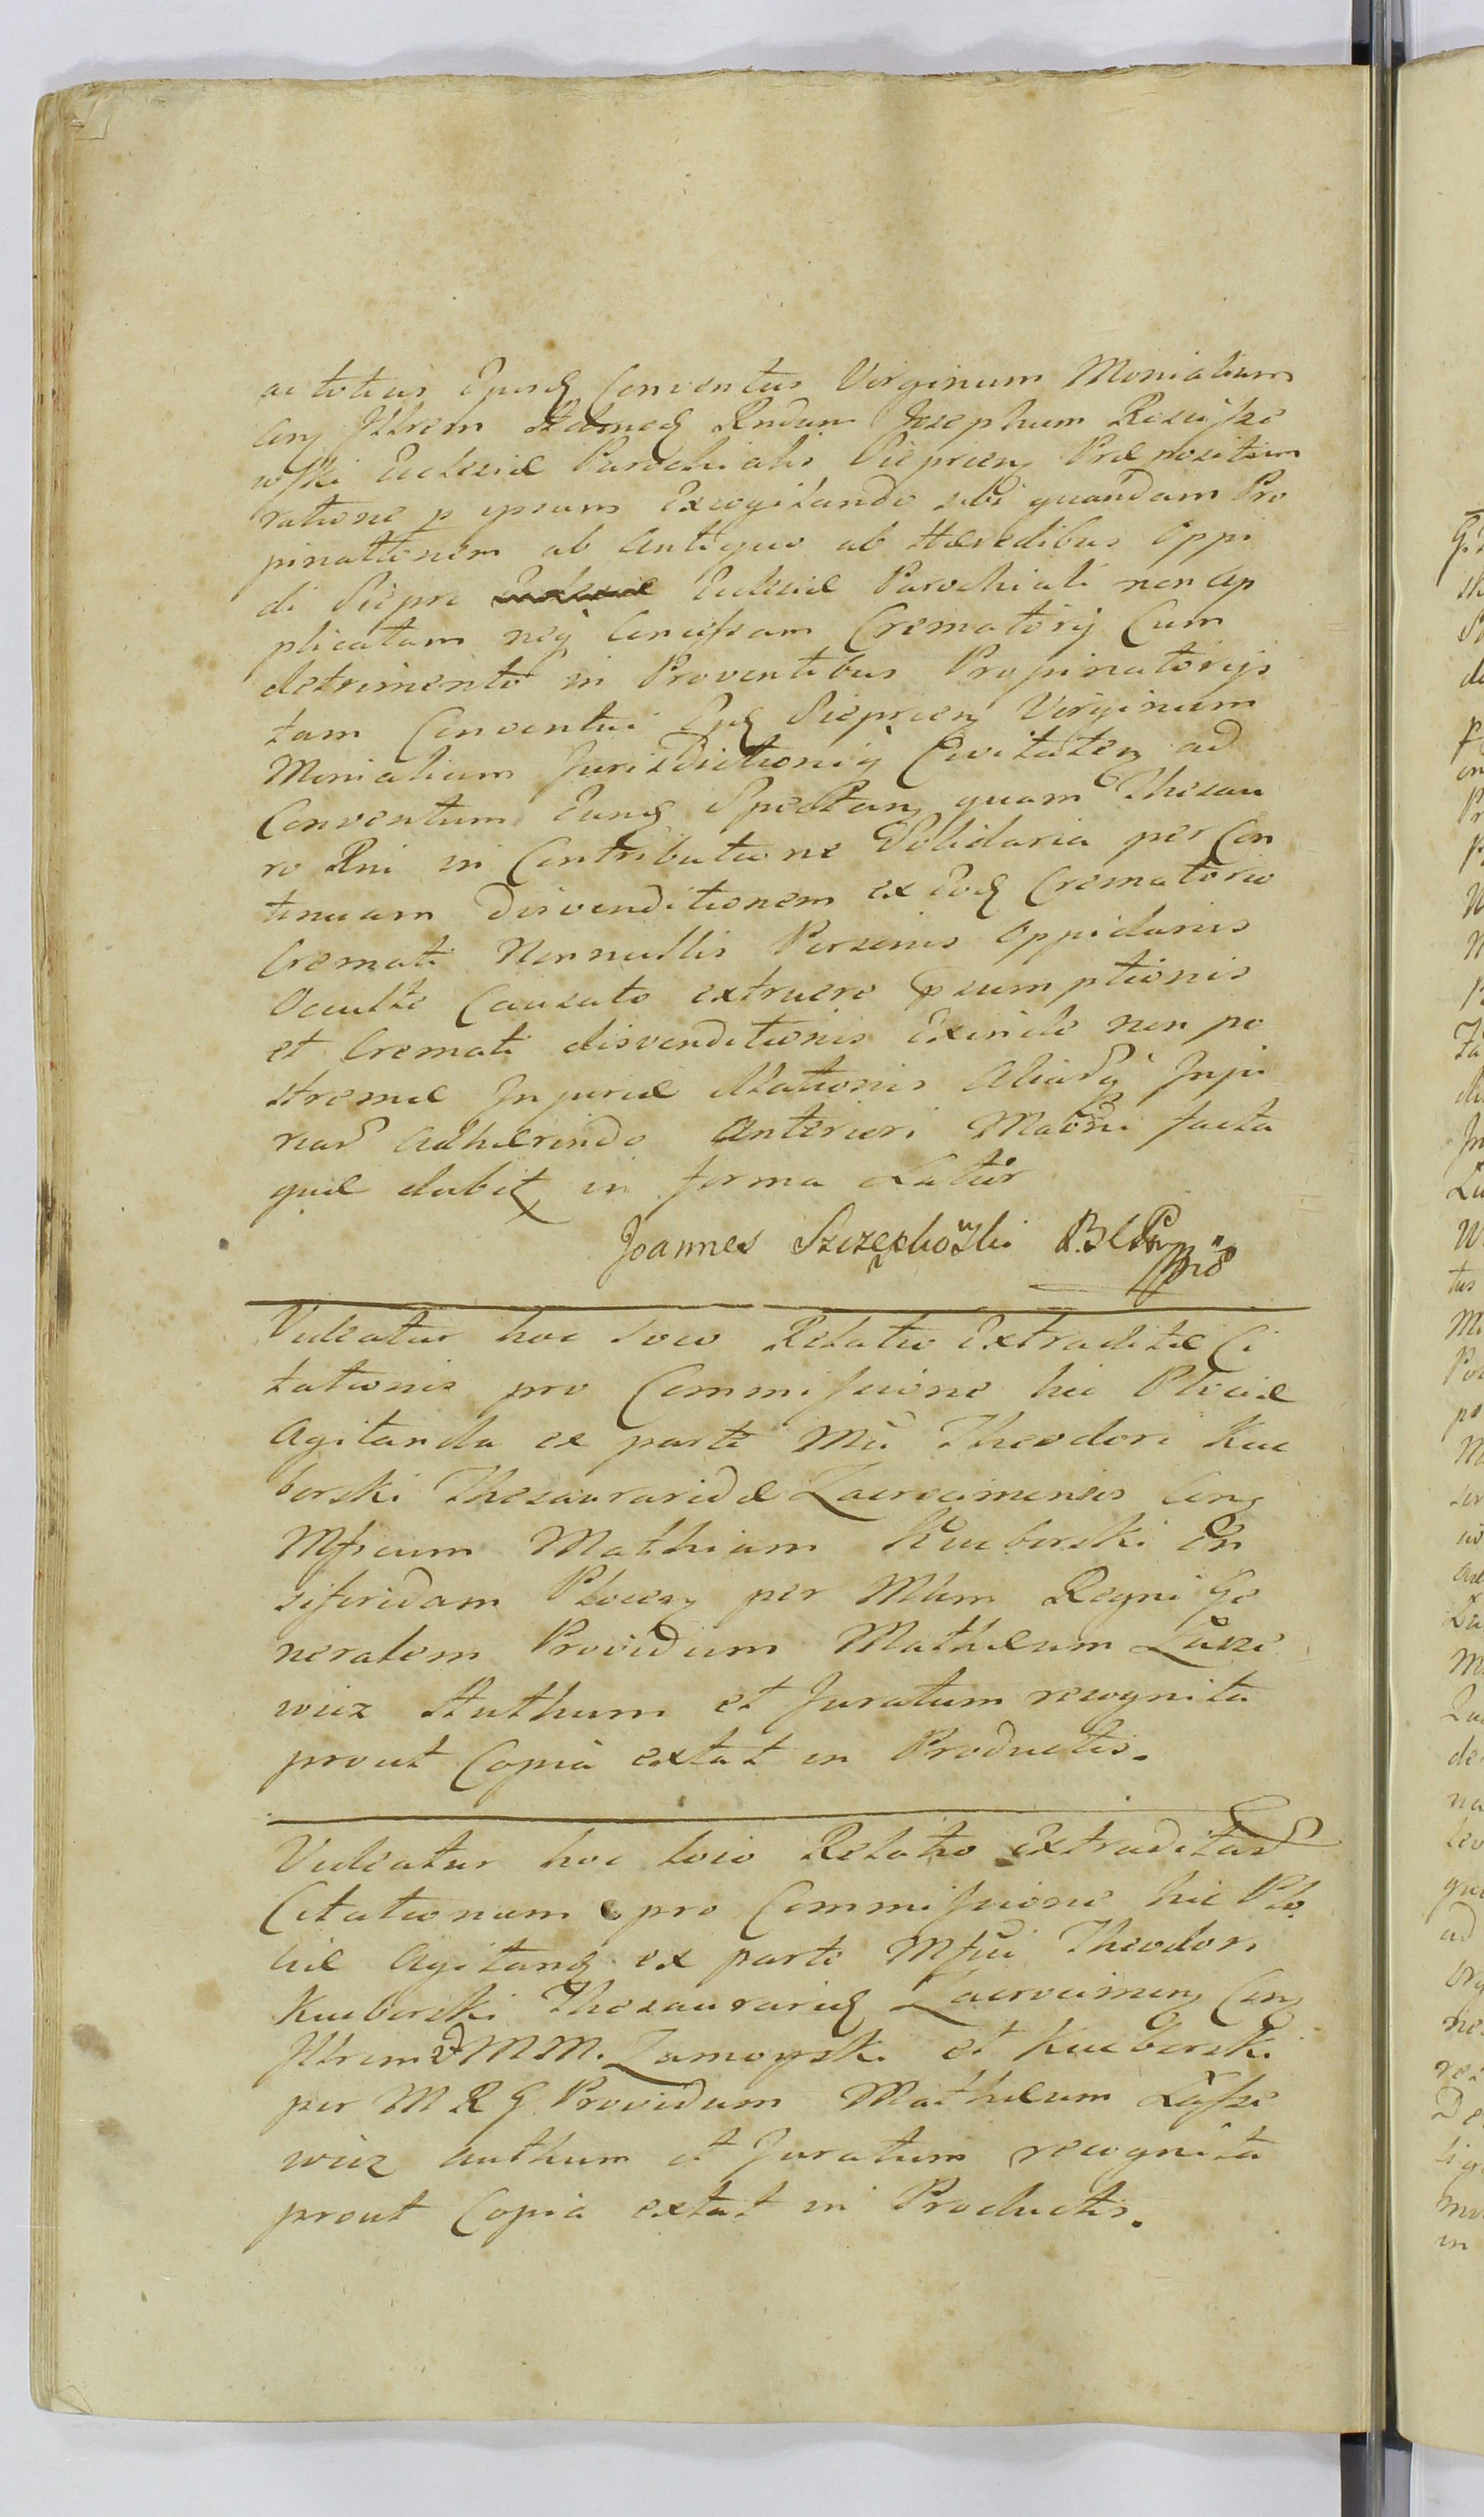 ac totius Ejusd Conventus Virginum Monialium
Con Illrem Rndum Josephum
wski Ecclesiæ Parochialis Sieprcen Præpositum
ratione p ipsum Excogitando sibi quandam Pro
pinationem ab antiquo ab Hæredibus Oppi
di Sieprc Ecclesiæ Parochiali non ap
plicatam neq Concessam Crematorij Cum
detrimento in Proventibus Propinatorijs
tam Conventui Ejusd Sieprcen Virginum
Monialium Jurisdictioniq Civitaten ad
Conventum Eund Spectan quam Thesau
ro Rni in Contributione Solidaria per Con
tinuam Disvenditionem ex Eod Crematorio
Cremati Nonnullis Personis Oppidanis
Occulte Causato extruere Præsumptionis
et Cremati disvenditionis Exinde non po
stremæ Injuriæ Illationis Aliarq Inju
riar adhærendo Anteriori Maõni facta
quæ dabit in forma Latior
Joannes
Videatur hoc loco Relatio Extraditæ Ci
tationis pro Commissione hic Plociæ
Agitanda ex parte Mci Theodori Kuc
borski Thesauraridæ Zacrocimensis Con
Mfcum Mathiam Kucborski En
siferidam Plocen per Mlum Regni Ge
neralem Providum Mathæum Lasze
wicz Authum et Juratum recognita
prout Copia extat in Productis.
Videatur hoc loco Relatio Extraditar
Citationum pro Commissione hic Plo
ciæ Agitand ex parte Mfci Theodori
Kucborski Thesaurarid Zacrocimen Con
Illrem et MM. Zamoyski et Kucborski
per M R G Providum Mathæum Lassze
wicz authum et Juratum recognita
prout Copia extat in Productis.